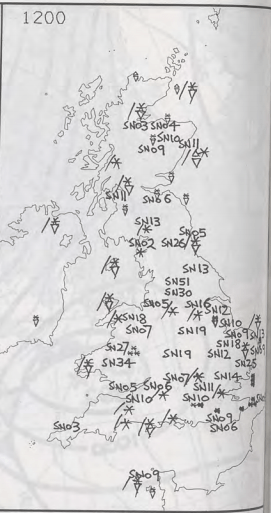 1200
SN03 SN04
SN10 SN11
SN09
SN11 SN06
SN13
SN02 SN26 SN05
SN13
SN51
SN30
SN05 SN16
SN18 SN12
SN07 SN19 SN10
SN09
SN18
SN27 SN19 SN12
SN34 SN25
SN07 SN14
SN05 SN06 SN11
SN10 SN10
SN09
SN03 SN06
SN09